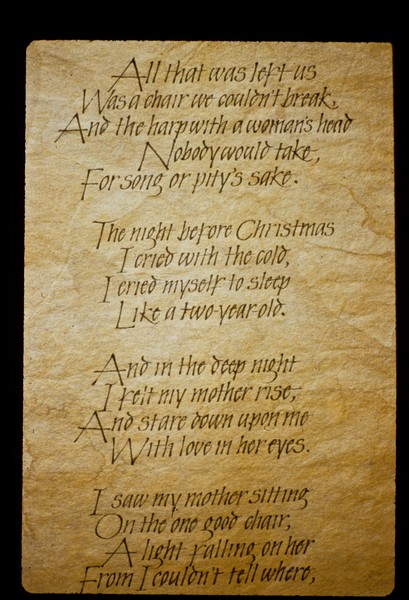 All that was left us
Was a chair we couldn't break,
And the harp with a woman's head
Nobody would take,
For song or pity's sake.
The night before Christmas
I cried with the cold,
I cried myself to sleep
Like a two-year-old.
And in the deep night
I felt my mother rise,
And stare down upon me
With love in her eyes.
I saw my mother sitting
On the one good chair,
A light falling on her
From I couldn't tell where,